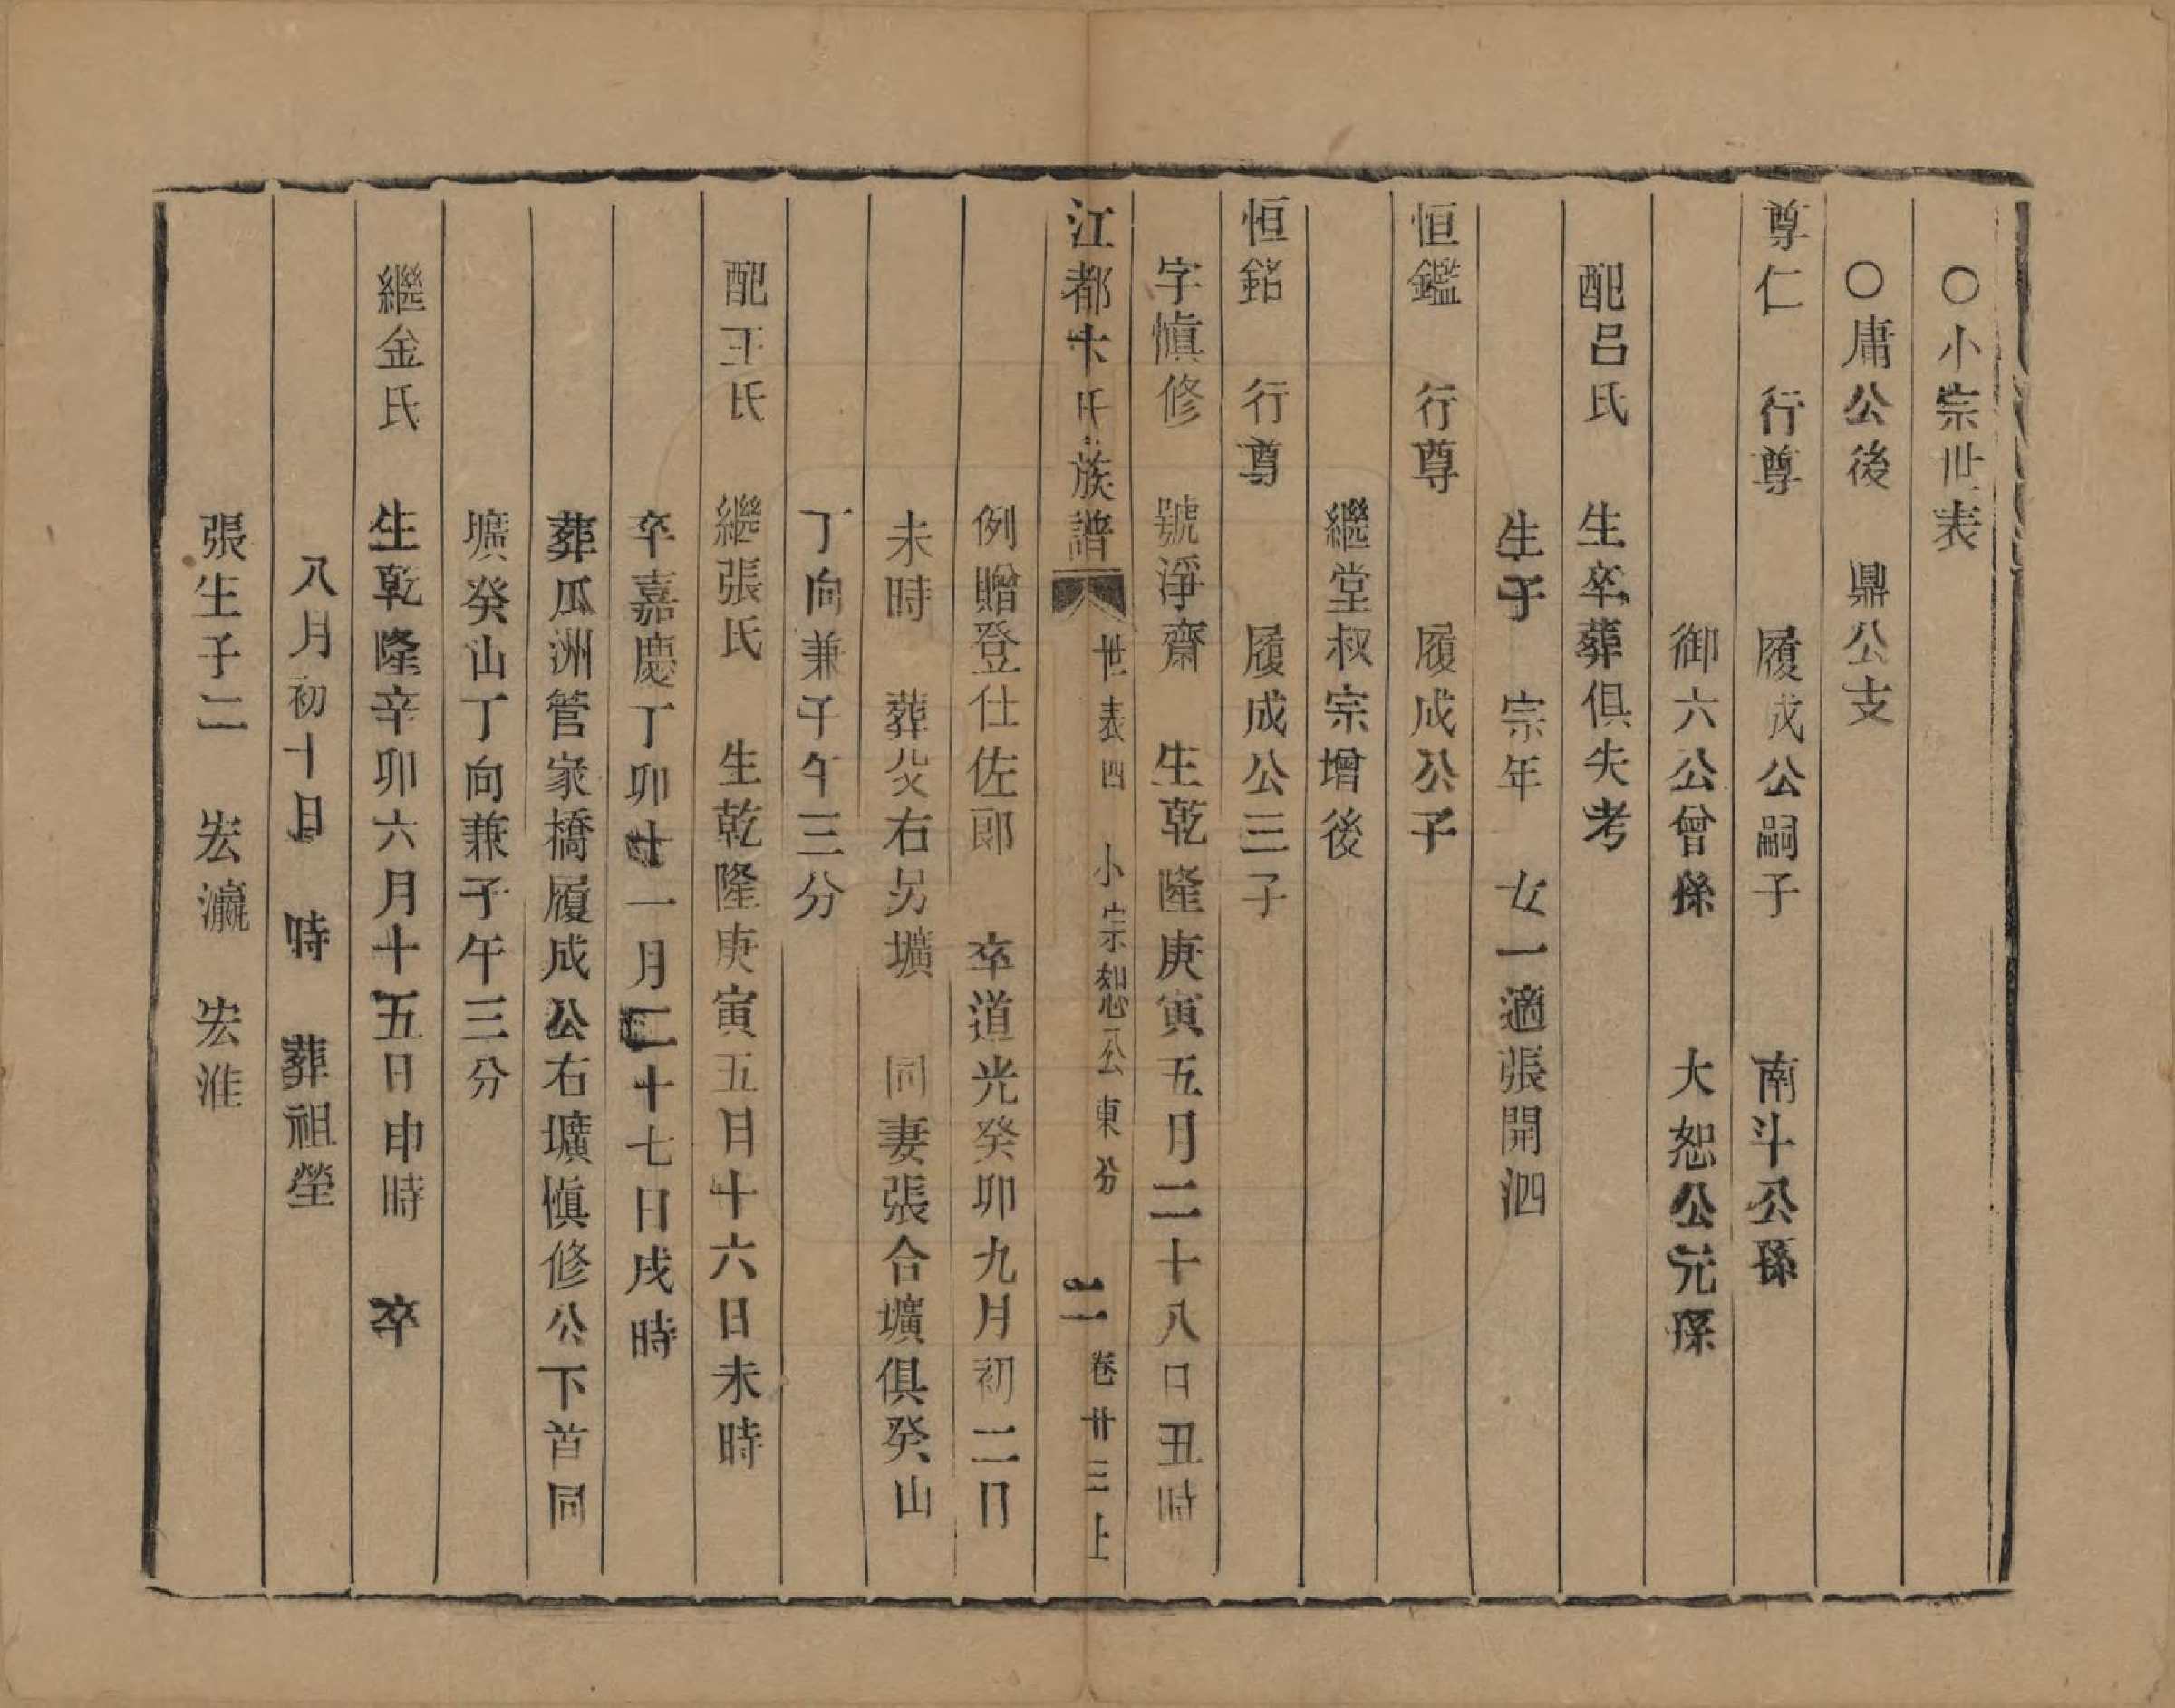 ○小宗世表
○庸公後　鼎公支
尊仁　行尊　履成公嗣子　南斗公孫
御六公曾孫　大恕公元孫
配呂氏　生卒葬俱失考
生子　宗年　女一適張開泗
恒鑑　行尊　履成公子
繼堂叔宗增後
恒銘　行尊　履成公三子
字愼修　號淨齋　生乾隆庚寅五月二十八日丑時
江都卞氏族譜　世表四　小宗恕公東分　二　卷廿三上
例贈登仕佐郎　卒道光癸卯九月初二日
未時　葬父右另壙　同妻張合壙俱癸山
丁向兼子午三分
配王氏　繼張氏　生乾隆庚寅五月十六日未時
卒嘉慶丁卯十一月二十七日戌時
葬瓜洲管家橋履成公右壙愼修公下首同
壙癸山丁向兼子午三分
繼金氏　生乾隆辛卯六月十五日申時　卒
八月初十日　時　葬祖塋
張生子二　宏瀛　宏淮